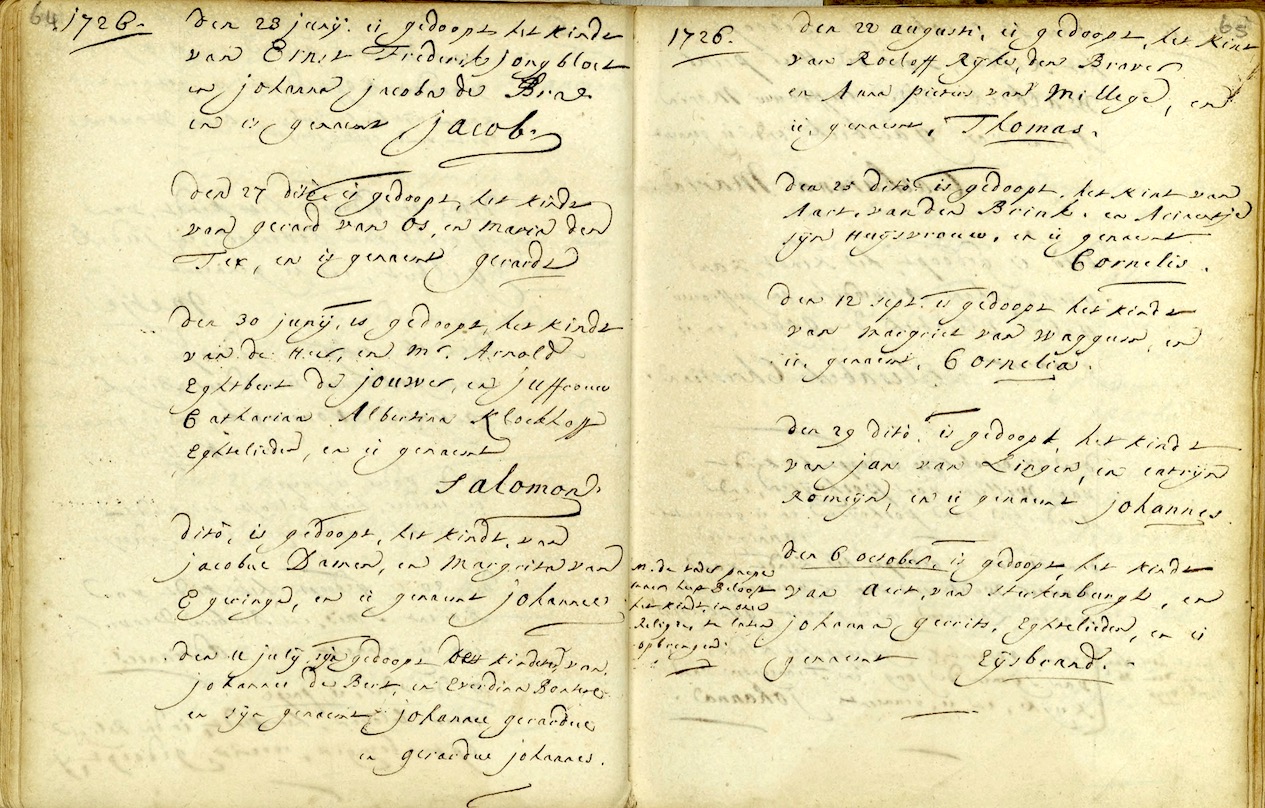 64
1726.
den 23 junij. is gedoopt het kindt
van Ernst Frederik jongbloet
en johanna jacoba de Bra
en is genaemt jacob.
den 27 dito is gedoopt, het kindt
van gerard van Os, en maria den
Tex, en is genaemt gerardt
den 30 junij, is gedoopt, het kindt
van de Heer, en mr. Arnold
Eghtbert de jouwer, en juffrouw
Catharina Albertina Klockhoff
Eghtelieden, en is genaemt
Salomon.
dito, is gedoopt, het kindt, van
jacobus Damen, en Margrita van
Egeringe, en is genaemt johannes
den 11 julij sijn gedoopt de kinderen van
johannes de Bert, en Everdina Bontre
en sijn genaemt johannes gerardus
en gerardus johannes.
65
1726.
den 22 augusti, is gedoopt, het kint
van Roeloff Rijke, den Braver
en Anna pieters van Millege, en
is genaemt, Thomas.
den 25 dito is gedoopt, het kint van
Aart, van den Brink, en
sijn Huijsvrouw, en is genaemt
Cornelis.
den 12 sept. is gedoopt, het kindt
van margriet van waggum, en
is genaemt, Cornelia.
den 29 dito. is gedoopt, het kindt
van jan van Lingen, en catrijn
Romeijn, en is genaemt johannes.
den 6 october, is gedoopt, het kindt
van Aert, van sterkenburgh, en
johanna gerrits, Eghtelieden, en is
genaemt Eijsbrand.
n. de vader paeps
heeft belooft
het kindt, in onse
Religie, te laten
opbrengen